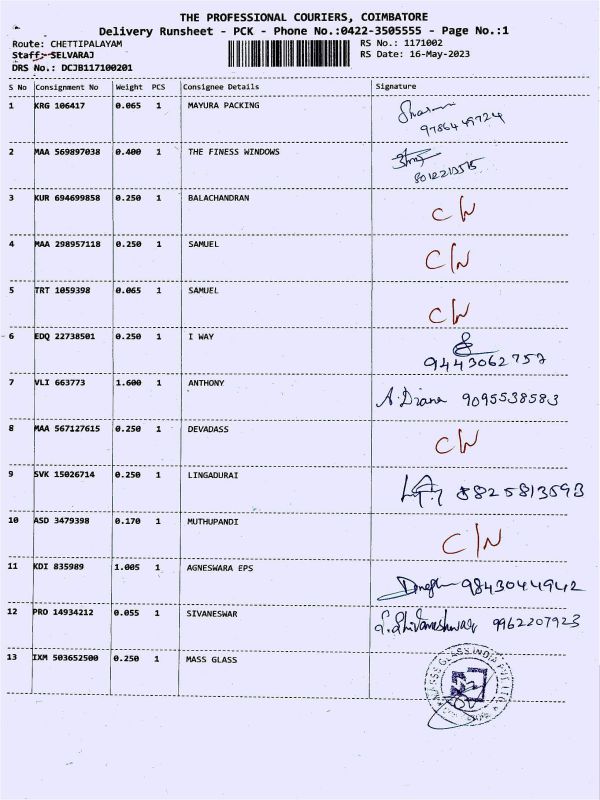 THE PROFESSIONAL COURIERS, COIMBATORE
Delivery Runsheet - PCK - Phone No.:0422-3505555 - Page No.:1
Route: CHETTIPALAYAM RS No.: 1171002
Staff: SELVARAJ RS Date: 16-May-2023
DRS No.: DCJB117100201
S No Consignment No Weight PCS Consignee Details Signature
1 KRG 106417 0.065 1 MAYURA PACKING
9786449724
2 MAA 569897038 0.400 1 THE FINESS WINDOWS
8012213515
3 KUR 694699858 0.250 1 BALACHANDRAN C/N
4 MAA 298957118 0.250 1 SAMUEL C/N
5 TRT 1059398 0.065 1 SAMUEL C/N
6 EDQ 22738501 0.250 1 I WAY
9443062757
7 VLI 663773 1.600 1 ANTHONY A. Diana 9095538583
8 MAA 567127615 0.250 1 DEVADASS C/N
9 SVK 15026714 0.250 1 LINGADURAI 8825813593
10 ASD 3479398 0.170 1 MUTHUPANDI C/N
11 KDI 835989 1.005 1 AGNESWARA EPS 9843044942
12 PRO 14934212 0.055 1 SIVANESWAR 9962207923
13 IXM 503652500 0.250 1 MASS GLASS
GLASS INDIA PVT LTD